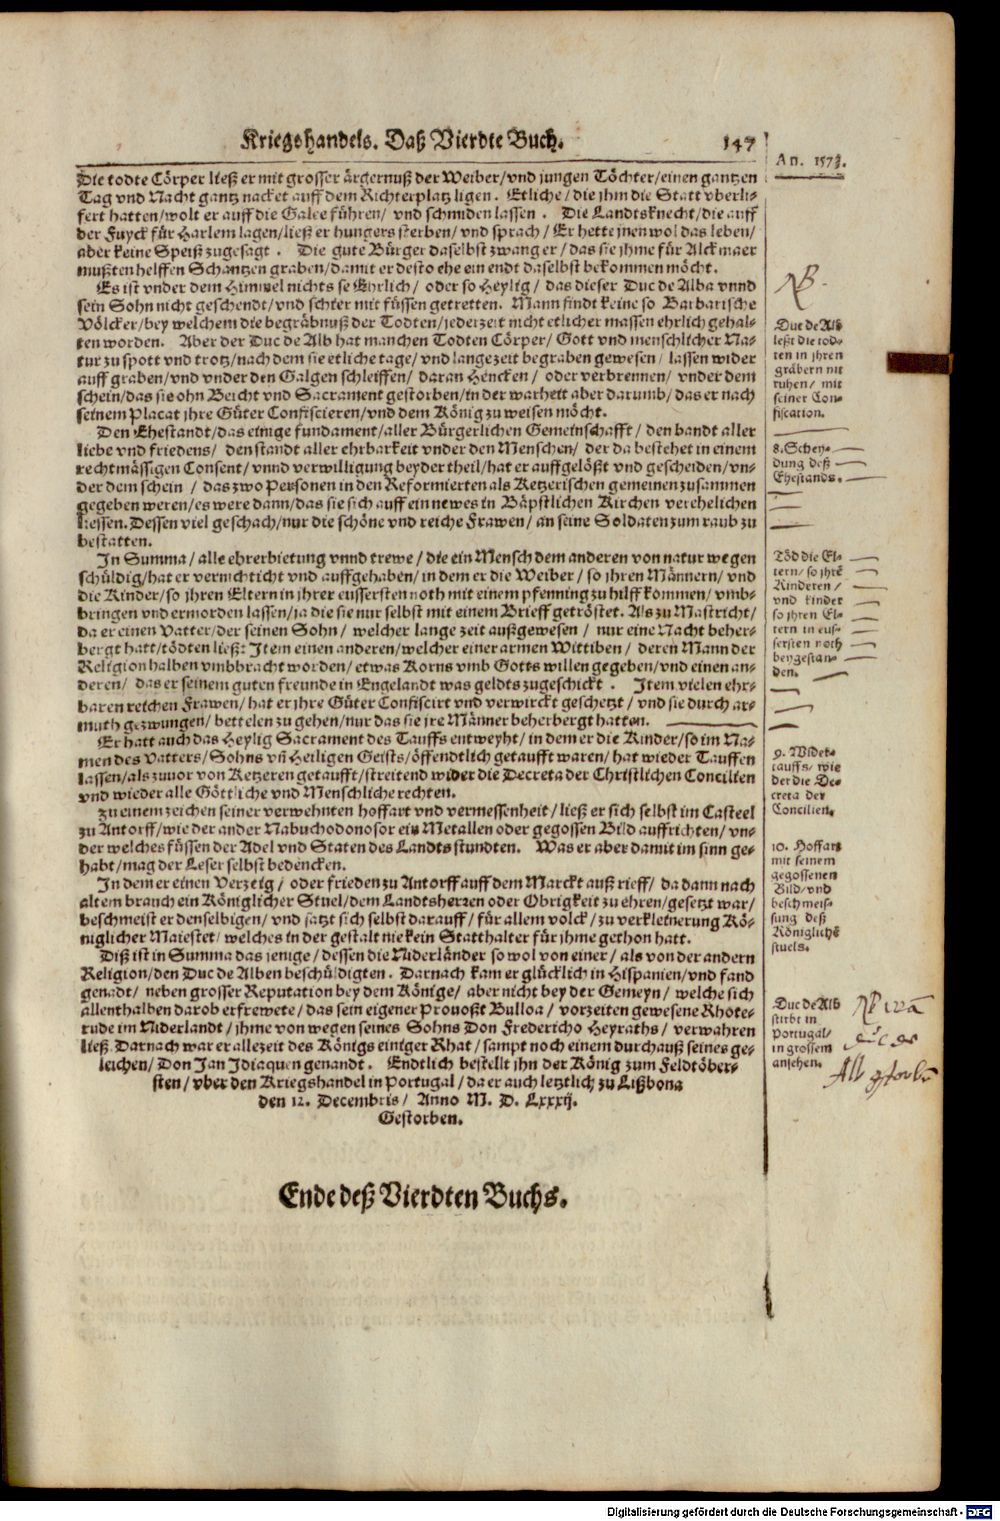 Kriegshandels. Daß Vierdte Buch. 147
An. 1573.
Die todte Cörper ließ er mit grosser ärgernuß der Weiber/vnd jungen Töchter/einen gantzen
Tag vnd Nacht gantz nacket auff dem Richterplatz ligen. Etliche/die jhm die Statt vberli-
fert hatten/wolt er auff die Galee führen/ vnd schmiden lassen. Die Landtsknecht/die auff
der Fuyck für Harlem lagen/ließ er hungers sterben/ vnd sprach/ Er hette jnen wol das leben/
aber keine Speiß zugesagt. Die gute Bürger daselbst zwang er/das sie jhme für Alckmaer
mußten helffen Schantzen graben/damit er desto ehe ein endt daselbst bekommen möcht.
Es ist vnder dem Himmel nichts se Ehrlich/ oder so Heylig/ das dieser Duc de Alba vnnd
sein Sohn nicht geschendt/vnd schier mit füssen getretten. Mann findt keine so Barbarische
Völcker/bey welchem die begräbnuß der Todten/jederzeit nicht etlicher massen ehrlich gehal-
ten worden. Aber der Duc de Alb hat manchen Todten Cörper/ Gott vnd menschlicher Na-
tur zu spott vnd trotz/nach dem sie etliche tage/ vnd lange zeit begraben gewesen/ lassen wider
auff graben/vnd vnder den Galgen schleiffen/ daran Hencken/ oder verbrennen/ vnder dem
schein/das sie ohn Beicht vnd Sacrament gestorben/in der warheit aber darumb/das er nach
seinem Placat jhre Güter Confiscieren/vnd dem König zu weisen möcht.
Den Ehestandt/das einige fundament/aller Bürgerlichen Gemeinschafft/ den bandt aller
liebe vnd friedens/ den standt aller ehrbarkeit vnder den Menschen/ der da bestehet in einem
rechtmässigen Consent/ vnnd verwilligung beyder theil/hat er auffgelößt vnd gescheiden/vn-
der dem schein/ das zwo Personen in den Reformierten als Ketzerischen gemeinen zusammen
gegeben weren/es were dann/das sie sich auff ein newes in Bäpstlichen Kirchen verehelichen
liessen. Dessen viel geschach/nur die schöne vnd reiche Frawen/ an seine Soldaten zum raub zu
bestatten.
In Summa/ alle ehrerbietung vnnd trewe/ die ein Mensch dem anderen von natur wegen
schüldig/hat er vernichticht vnd auffgehaben/ in dem er die Weiber/ so jhren Männern/ vnd
die Kinder/so jhren Eltern in jhrer eussersten noth mit einem pfenning zu hilff kommen/ vmb-
bringen vnd ermorden lassen/ja die sie nur selbst mit einem Brieff getröstet. Als zu Mastricht/
da er einen Vatter/der seinen Sohn/ welcher lange zeit außgewesen/ nur eine Nacht beher-
bergt hatt/tödten ließ: Item einen anderen/welcher einer armen Wittiben/ deren Mann der
Religion halben vmbbracht worden/etwas Korns vmb Gotts willen gegeben/vnd einen an-
deren/ das er seinem guten freunde in Engelandt was geldts zugeschickt. Item vielen ehr-
baren reichen Frawen/ hat er jhre Güter Confiscirt vnd verwirckt geschetzt/ vnd sie durch ar-
muth gezwungen/ bettelen zu gehen/nur das sie jre Männer beherbergt hatten.
Er hatt auch das Heylig Sacrament des Tauffs entweyht/ in dem er die Kinder/so im Na-
men des Vatters/ Sohns vñ Heiligen Geists/öffendtlich getaufft waren/ hat wieder Tauffen
lassen/als zuuor von Ketzeren getaufft/streitend wider die Decreta der Christlichen Concilien
vnd wieder alle Göttliche vnd Menschliche rechten.
Zu einem zeichen seiner verwehnten hoffart vnd vermessenheit/ ließ er sich selbst im Casteel
zu Antorff/wie der ander Nabuchodonosor ein Metallen oder gegossen Bild auffrichten/ vn-
der welches füssen der Adel vnd Staten des Landts stundten. Was er aber damit im sinn ge-
habt/mag der Leser selbst bedencken.
In dem er einen Verzeig/ oder frieden zu Antorff auff dem Marckt auß rieff/ da dann nach
altem brauch ein Königlicher Stuel/dem Landtsherren oder Obrigkeit zu ehren/gesetzt war/
beschmeist er denselbigen/ vnd satzt sich selbst darauff/ für allem volck/zu verkleinerung Kö-
niglicher Maiestet/ welches in der gestalt nie kein Statthalter für jhme gethon hatt.
Diß ist in Summa das jenige/dessen die Niderländer so wol von einer/ als von der andern
Religion/den Duc de Alben beschüldigten. Darnach kam er glücklich in Hispanien/vnd fand
genadt/ neben grosser Reputation bey dem Könige/ aber nicht bey der Gemeyn/ welche sich
allenthalben darob erfrewete/das sein eigener Prouoßt Bulloa/ vorzeiten gewesene Rhote-
rude im Niderlandt/ jhme von wegen seines Sohns Don Fredericho Heyraths/ verwahren
ließ. Darnach war er allezeit des Königs einiger Rhat/ sampt noch einem durchauß seines ge-
leichen/ Don Jan Idiaquen genandt. Endtlich bestellt jhn der König zum Feldtöber-
sten/ vber den Kriegshandel in Portugal/da er auch letztlich zu Lißbona
den 12. Decembris/ Anno M. D. Lxxxij.
Gestorben.
Ende deß Vierdten Buchs.
NB.
Duc de Alb
leßt die tod-
ten in jhren
gräbern nit
ruhen/ mit
seiner Con-
fiscation.
8. Schey-
dung deß
Ehestands.
Töd die El-
tern/so jhrē
Kinderen/
vnd kinder
so jhren El-
tern in eus-
sersten noth
beygestan-
den.
9. Wider-
tauffs/ wie
der die De-
creta der
Concilien.
10. Hoffart
mit seinem
gegossenen
Bild/vnd
beschmeis-
sung deß
Königlichē
stuels.
Duc de Alb
stirbt in
Portugal/
in grossem
ansehen.
Digitalisierung gefördert durch die Deutsche Forschungsgemeinschaft - DFG